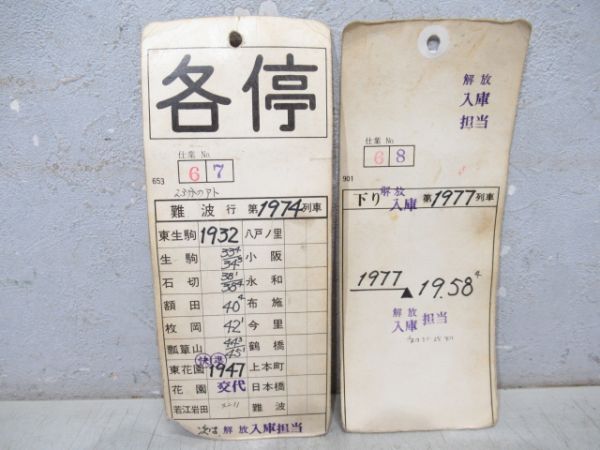 各停
仕業 No
6 7
653
23分のアト
難波行 第1974列車
東生駒 1932 八戸ノ里
生駒 33⁴ 34³ 小阪
石切 38¹ 38⁴ 永和
額田 40⁴ 布施
枚岡 42¹ 今里
瓢簞山 44³ 45¹ 鶴橋
快準
東花園 1947 上本町
花園 交代 日本橋
若江岩田 難波
次は 解放 入庫担当
解放
入庫
担当
仕業 No
6 8
901
下り 解放 入庫 第1977列車
1977 ▲ 19.58⁴
解放
入庫 担当